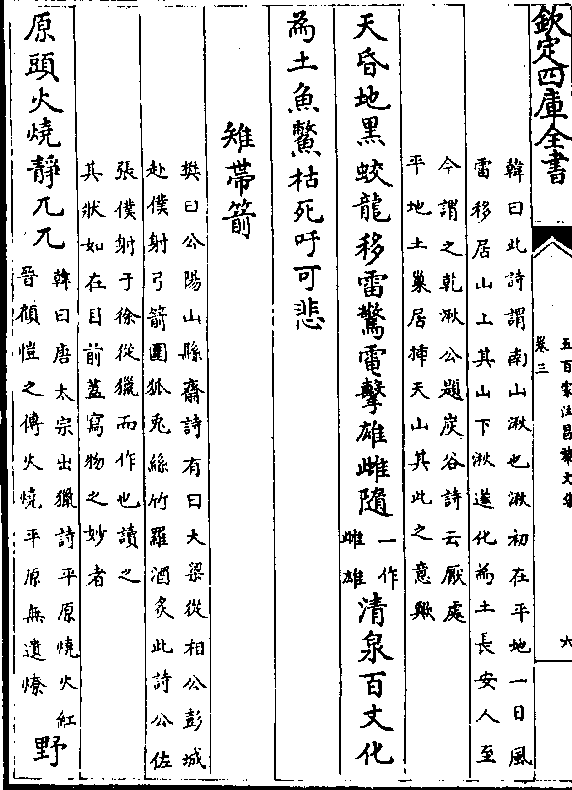 欽定四庫全書
五百家注昌黎文集
卷三
六
韓曰此詩謂南山湫也湫初在平地一日風
雷移居山上其山下湫遂化為土長安人至
今謂之乾湫公題炭谷詩云厭處
平地土巢居揷天山其此之意歟
天昏地黑蛟龍移雷驚電擊雄雌隨一作雌雄清泉百丈化
為土魚鼈枯死吁可悲
雉帶箭
樊曰公陽山縣齋詩有曰大梁從相公彭城
赴僕射弓箭圍狐兎絲竹羅酒炙此詩公佐
張僕射于徐從獵而作也讀之
其狀如在目前蓋寫物之妙者
原頭火燒靜兀兀韓曰唐太宗出獵詩平原燒火紅晉顧愷之傳火燒平原無遺燎野